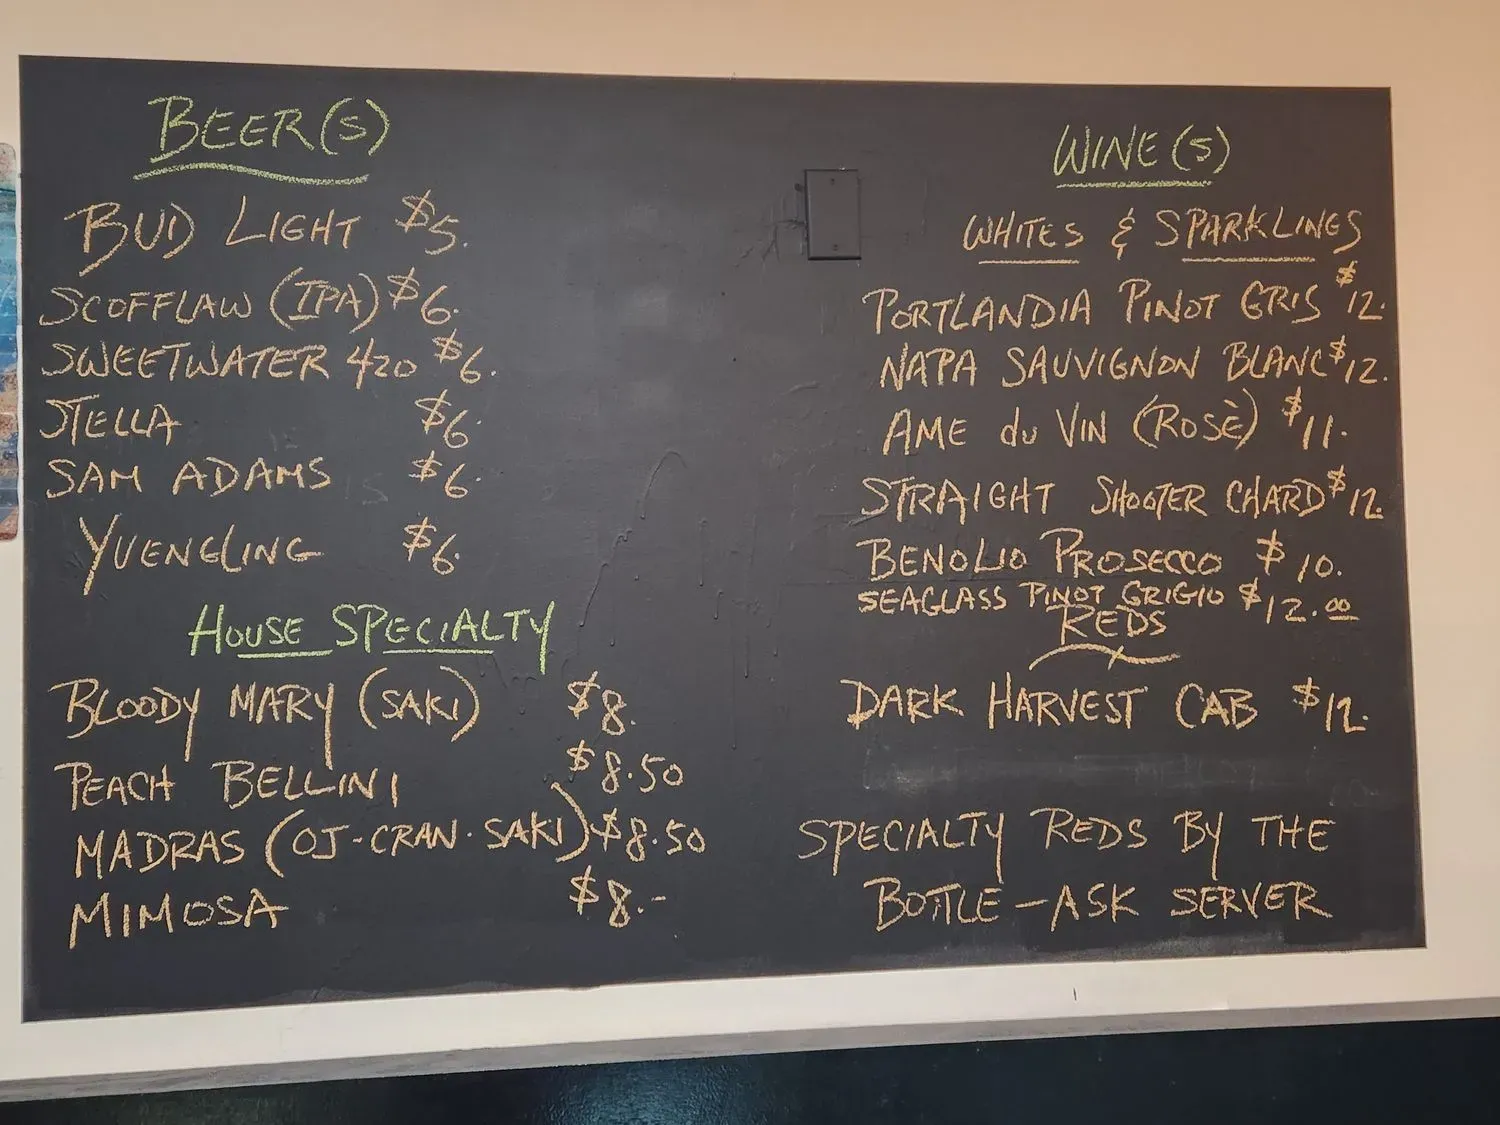 BEER(S)
BUD LIGHT $5.
SCOFFLAW (IPA) $6.
SWEETWATER 420 $6.
STELLA $6.
SAM ADAMS $6.
YUENGLING $6.
HOUSE SPECIALTY
BLOODY MARY (SAKI) $8.
PEACH BELLINI $8.50
MADRAS (OJ-CRAN·SAKI) $8.50
MIMOSA $8.-
WINE(S)
WHITES & SPARKLINGS
PORTLANDIA PINOT GRIS $12.
NAPA SAUVIGNON BLANC $12.
AME du VIN (ROSÈ) $11.
STRAIGHT SHOOTER CHARD $12.
BENOLIO PROSECCO $10.
SEAGLASS PINOT GRIGIO $12.00
REDS
DARK HARVEST CAB $12.
SPECIALTY REDS BY THE
BOTTLE - ASK SERVER